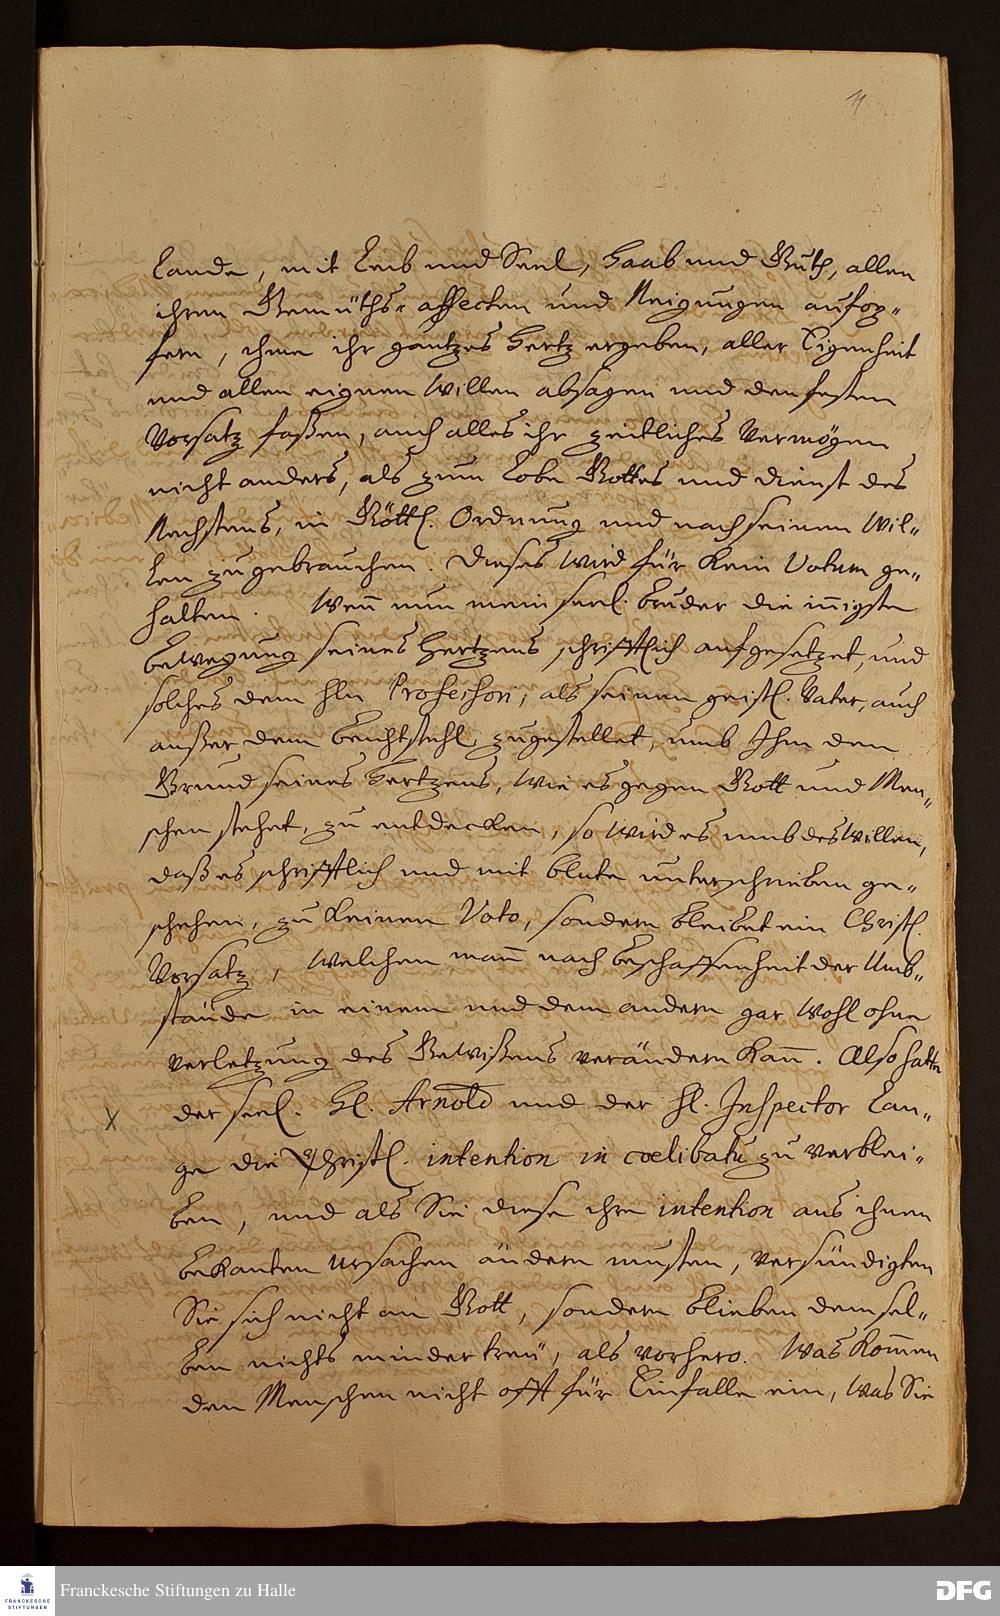 11
Lande, mit Leib und Seel, Haab und Guth, allen
ihren Gemüths-affecten und Neigungen aufop-
fern, ihme ihr gantzes Hertz ergeben, aller Eigenheit
und allen eignen Willen absagen und den festen
Vorsatz faßen, auch alles ihr zeitliches Vermögen
nicht anders, als zum Lobe Gottes und Dienst des
Nechstens, in Göttl. Ordnung und nach seinem Wil-
len zu gebrauchen. Dieses wird für kein Votum ge-
halten. Weñ nun mein seel. Bruder die iñigste
Bewegung seines Hertzens schrifftlich aufgesetzet, und
solches dem Hln Professori, als seinem geistl. Vater, auch
außer dem Beichtstuhl, zugestellet, umb Ihm den
Grund seines Hertzens, wie es gegen Gott und Men-
schen stehet, zu entdecken, so wird es umb deswillen,
daß es schrifftlich und mit Blute unterschrieben ge-
schehen, zu keinem Voto, sondern bleibet ein Christl.
Vorsatz, welchen mañ nach Beschaffenheit der Umb-
stände in einem und dem andern gar wohl ohne
Verletzung des Gewißens verändern kañ. Also hatte
X der seel. H. Arnold und der H. Inspector Lan-
ge die Christl. intention in coelibatu zu verblei-
ben, und als Sie diese ihre intention aus ihnen
bekanten Ursachen ändern musten, versündigten
Sie sich nicht an Gott, sondern blieben demsel-
ben nichts minder treu, als vorhero. Was kom̄en
den Menschen nicht offt für Einfälle ein, was Sie
Franckesche Stiftungen zu Halle
FRANCKESCHE
STIFTUNGEN
DFG